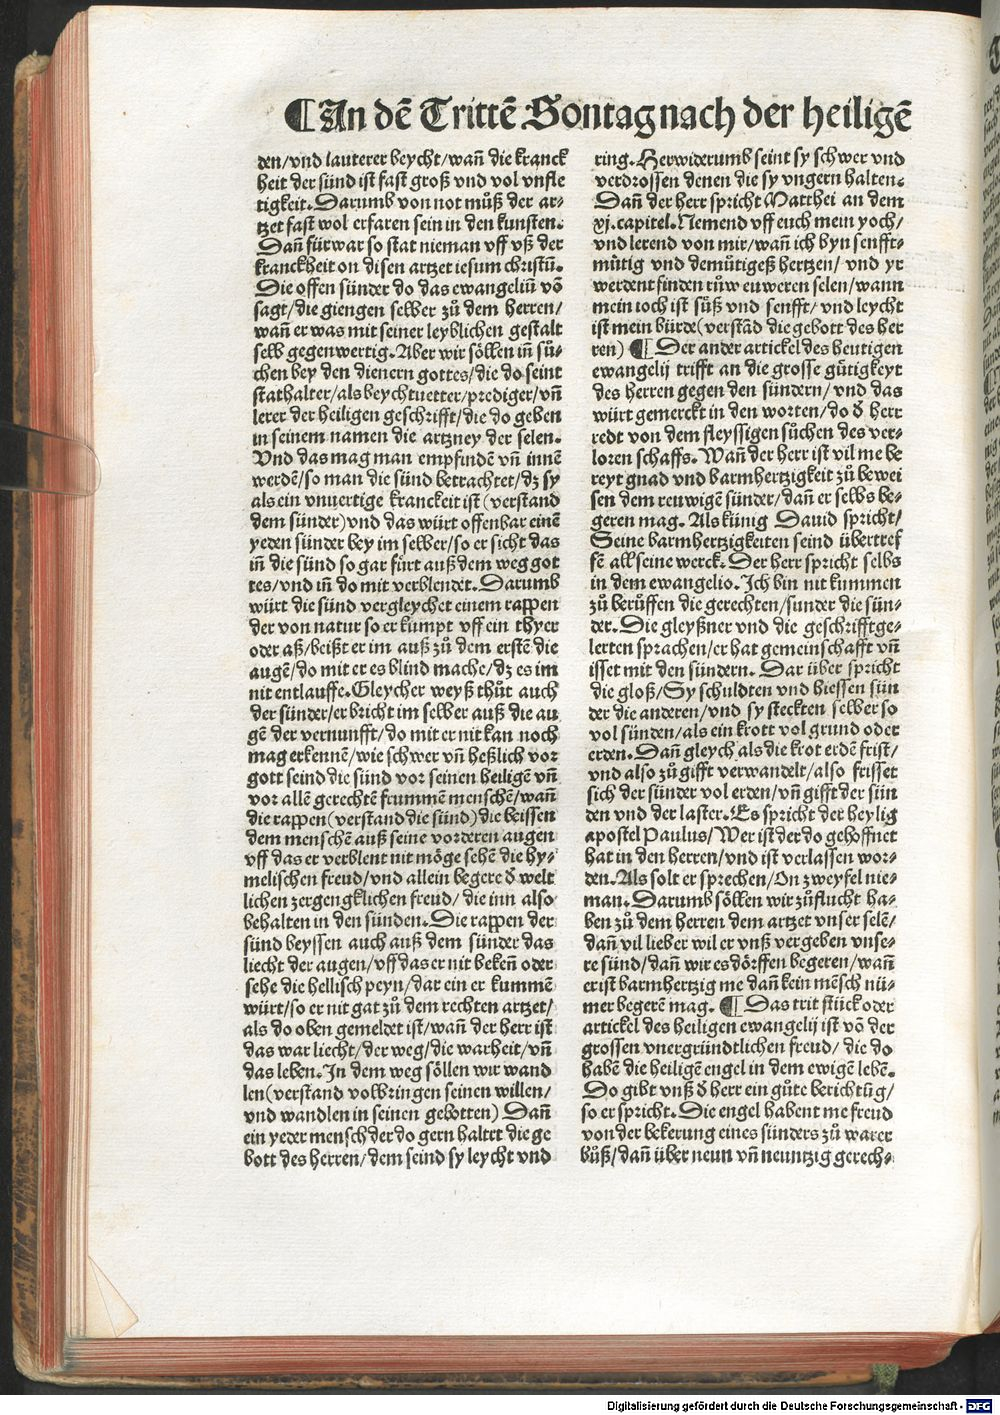 ¶ An dē Trittē Sontag nach der heiligē
den/vnd lauterer beycht/wañ die kranck
heit der sünd ist fast groß vnd vol vnfle
tigkeit. Darumb von not můß der ar⸗
tzet fast wol erfaren sein in den kunsten.
Dañ fürwar so stat nieman vff vß der
kranckheit on disen artzet iesum christū.
Die offen sünder do das ewangeliū vō
sagt/die giengen selber zů dem herren/
wañ er was mit seiner leyblichen gestalt
selb gegenwertig. Aber wir söllen in̄ sů⸗
chen bey den dienern gottes/die do seint
stathalter/als beychtuetter/prediger/vñ
lerer der heiligen geschrifft/die do geben
in seinem namen die artzney der selen.
Vnd das mag man empfindē vñ innē
werdē/so man die sünd betrachtet/dz sy
als ein vnuertige kranckeit ist (verstand
dem sünder) vnd das würt offenbar einē
yeden sünder bey im selber/so er sicht das
in̄ die sünd so gar fürt auß dem weg got
tes/vnd in̄ do mit verblendet. Darumb
würt die sünd vergleychet einem rappen
der von natur so er kumpt vff ein thyer
oder aß/beißt er im auß zů dem erstē die
augē/do mit er es blind mache/dz es im
nit entlauffe. Gleycher weyß thůt auch
der sünder/er bricht im selber auß die au
gē der vernunfft/do mit er nit kan noch
mag erkennē/wie schwer vñ heßlich vor
gott seind die sünd vor seinen heiligē vñ
vor allē gerechtē frummē menschē/wañ
die rappen (verstand die sünd) die beissen
dem menschē auß seine vorderen augen
vff das er verblent nit möge sehē die hy⸗
melischen freud/vnd allein begere d̄ welt
lichen zergengklichen freud/die inn also
behalten in den sünden. Die rappen der
sünd beyssen auch auß dem sünder das
liecht der augen/vff das er nit bekeñ oder
sehe die hellisch peyn/dar ein er kummē
würt/so er nit gat zů dem rechten artzet/
als do oben gemeldet ist/wañ der herr ist
das war liecht/der weg/die warheit/vñ
das leben. In dem weg söllen wir wand
len (verstand volbringen seinen willen/
vnd wandlen in seinen gebotten) Dañ
ein yeder mensch der do gern haltet die ge
bott des herren/dem seind sy leycht vnd
ring. Herwiderumb seint sy schwer vnd
verdrossen denen die sy vngern halten.
Dañ der herr spricht Matthei an dem
xj. capitel. Nemend vff euch mein yoch/
vnd lerend von mir/wañ ich byn senfft⸗
mütig vnd demütigeß hertzen/vnd yr
werdent finden růw euweren selen/wann
mein ioch ist süß vnd senfft/vnd leycht
ist mein bürde (verstād die gebott des her
ren) ¶ Der ander artickel des heutigen
ewangelij trifft an die grosse gütigkeyt
des herren gegen den sündern/vnd das
würt gemerckt in den worten/do d̄ herr
redt von dem fleyssigen sůchen des ver⸗
loren schaffs. Wañ der herr ist vil me be
reyt gnad vnd barmhertzigkeit zů bewei
sen dem reuwigē sünder/dañ er selbs be⸗
geren mag. Als künig Dauid spricht/
Seine barmhertzigkeiten seind übertref
fē all seine werck. Der herr spricht selbs
in dem ewangelio. Ich bin nit kummen
zů berůffen die gerechten/sunder die sün⸗
der. Die gleyßner vnd die geschrifftge⸗
lerten sprachen/er hat gemeinschafft vñ
isset mit den sündern. Dar über spricht
die gloß/Sy schuldten vnd hiessen sün
der die anderen/vnd sy steckten selber so
vol sünden/als ein krott vol grund oder
erden. Dañ gleych als die krot erdē frist/
vnd also zů gifft verwandelt/also frisset
sich der sünder vol erden/vñ gifft der sün
den vnd der laster. Es spricht der heylig
apostel Paulus/Wer ist der do gehoffnet
hat in den herren/vnd ist verlassen wor⸗
den. Als solt er sprechen/On zweyfel nie⸗
man. Darumb söllen wir zůflucht ha⸗
ben zů dem herren dem artzet vnser selē/
dañ vil lieber wil er vnß vergeben vnse⸗
re sünd/dañ wir es dörffen begeren/wañ
er ist barmhertzig me dañ kein mēsch nü⸗
mer begerē mag. ¶ Das trit stück oder
artickel des heiligen ewangelij ist vō der
grossen vnergründtlichen freud/die do
habē die heiligē engel in dem ewigē lebē.
Do gibt vnß d̄ herr ein gůte berichtūg/
so er spricht. Die engel habent me freud
von der bekerung eines sünders zů warer
bůß/dañ über neun vñ neuntzig gerech⸗
Digitalisierung gefördert durch die Deutsche Forschungsgemeinschaft - DFG